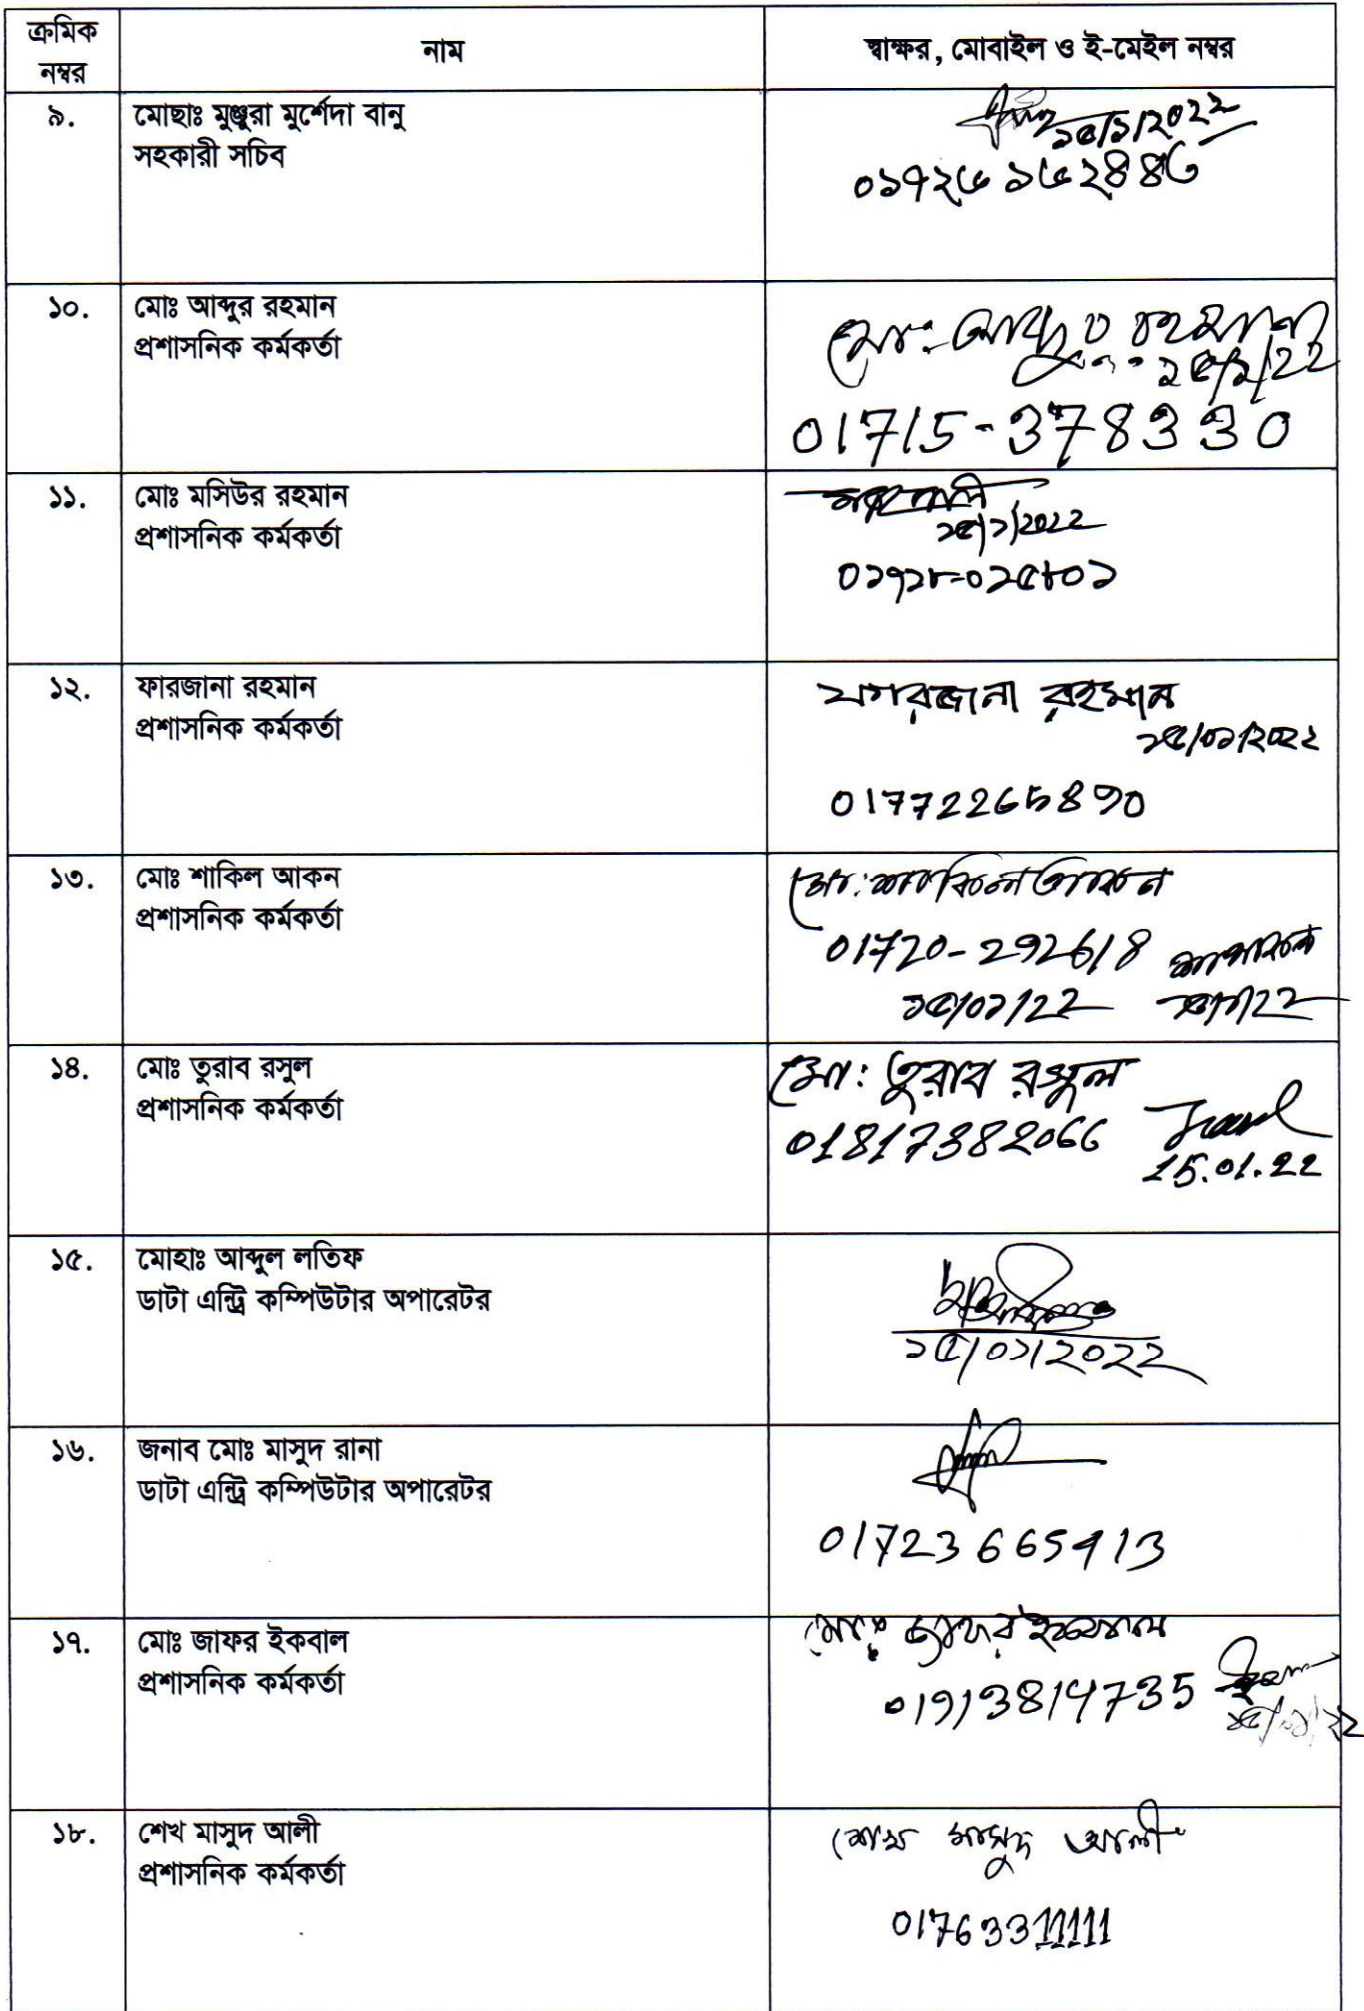 ক্রমিক নম্বর
নাম
স্বাক্ষর, মোবাইল ও ই-মেইল নম্বর
৯.
মোছাঃ মুঞ্জুরা মুর্শেদা বানু
সহকারী সচিব
১৫/১/২০২২
১০.
মোঃ আব্দুর রহমান
প্রশাসনিক কর্মকর্তা
মো: আব্দুর রহমান
১৫/১/22
01715-378330
১১.
মোঃ মসিউর রহমান
প্রশাসনিক কর্মকর্তা
১৫/১/২০২২
০১৭১৮-০১৫৮০১
১২.
ফারজানা রহমান
প্রশাসনিক কর্মকর্তা
ফারজানা রহমান
১৫/০১/২০২২
01772265890
১৩.
মোঃ শাকিল আকন
প্রশাসনিক কর্মকর্তা
মো: শাকিল আকন
01720-292618
১৫/০১/22
১৪.
মোঃ তুরাব রসুল
প্রশাসনিক কর্মকর্তা
মো: তুরাব রসুল
01817382066
15.01.22
১৫.
মোহাঃ আব্দুল লতিফ
ডাটা এন্ট্রি কম্পিউটার অপারেটর
১৫/০১/২০২২
১৬.
জনাব মোঃ মাসুদ রানা
ডাটা এন্ট্রি কম্পিউটার অপারেটর
01723665913
১৭.
মোঃ জাফর ইকবাল
প্রশাসনিক কর্মকর্তা
মোঃ জাফর ইকবাল
01913814735
১৮.
শেখ মাসুদ আলী
প্রশাসনিক কর্মকর্তা
শেখ মাসুদ আলী
01763311111